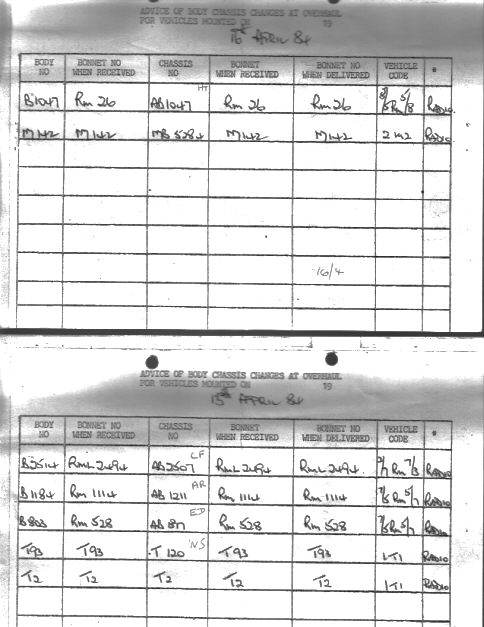 ADVICE OF BODY CHASSIS CHANGES AT OVERHAUL
FOR VEHICLES MOUNTED ON 19
16th APRIL 84
BODY NO BONNET NO WHEN RECEIVED CHASSIS NO BONNET WHEN RECEIVED BONNET NO WHEN DELIVERED VEHICLE CODE *
B1047 Rm 26 AB1047 HT Rm 26 Rm 26 8/5 Rm 5/8 RADIO
M142 M142 MB 5284 M142 M142 2 M2 RADIO
16/4
ADVICE OF BODY CHASSIS CHANGES AT OVERHAUL
FOR VEHICLES MOUNTED ON 19
15th APRIL 84
BODY NO BONNET NO WHEN RECEIVED CHASSIS NO BONNET WHEN RECEIVED BONNET NO WHEN DELIVERED VEHICLE CODE *
B2514 RmL 2494 AB 2507 LF RmL 2494 RmL 2494. Rm 7/8 RADIO
B1184 Rm 1114 AB 1211 AR Rm 1114 Rm 1114 7/5 Rm 5/7 RADIO
B803 Rm 528 AB 817 ED Rm 528 Rm 528 7/5 Rm 5/7 RADIO
T93 T93 T 120 NS T93 T93 1T1 RADIO
T2 T2 T2 T2 T2 1T1 RADIO